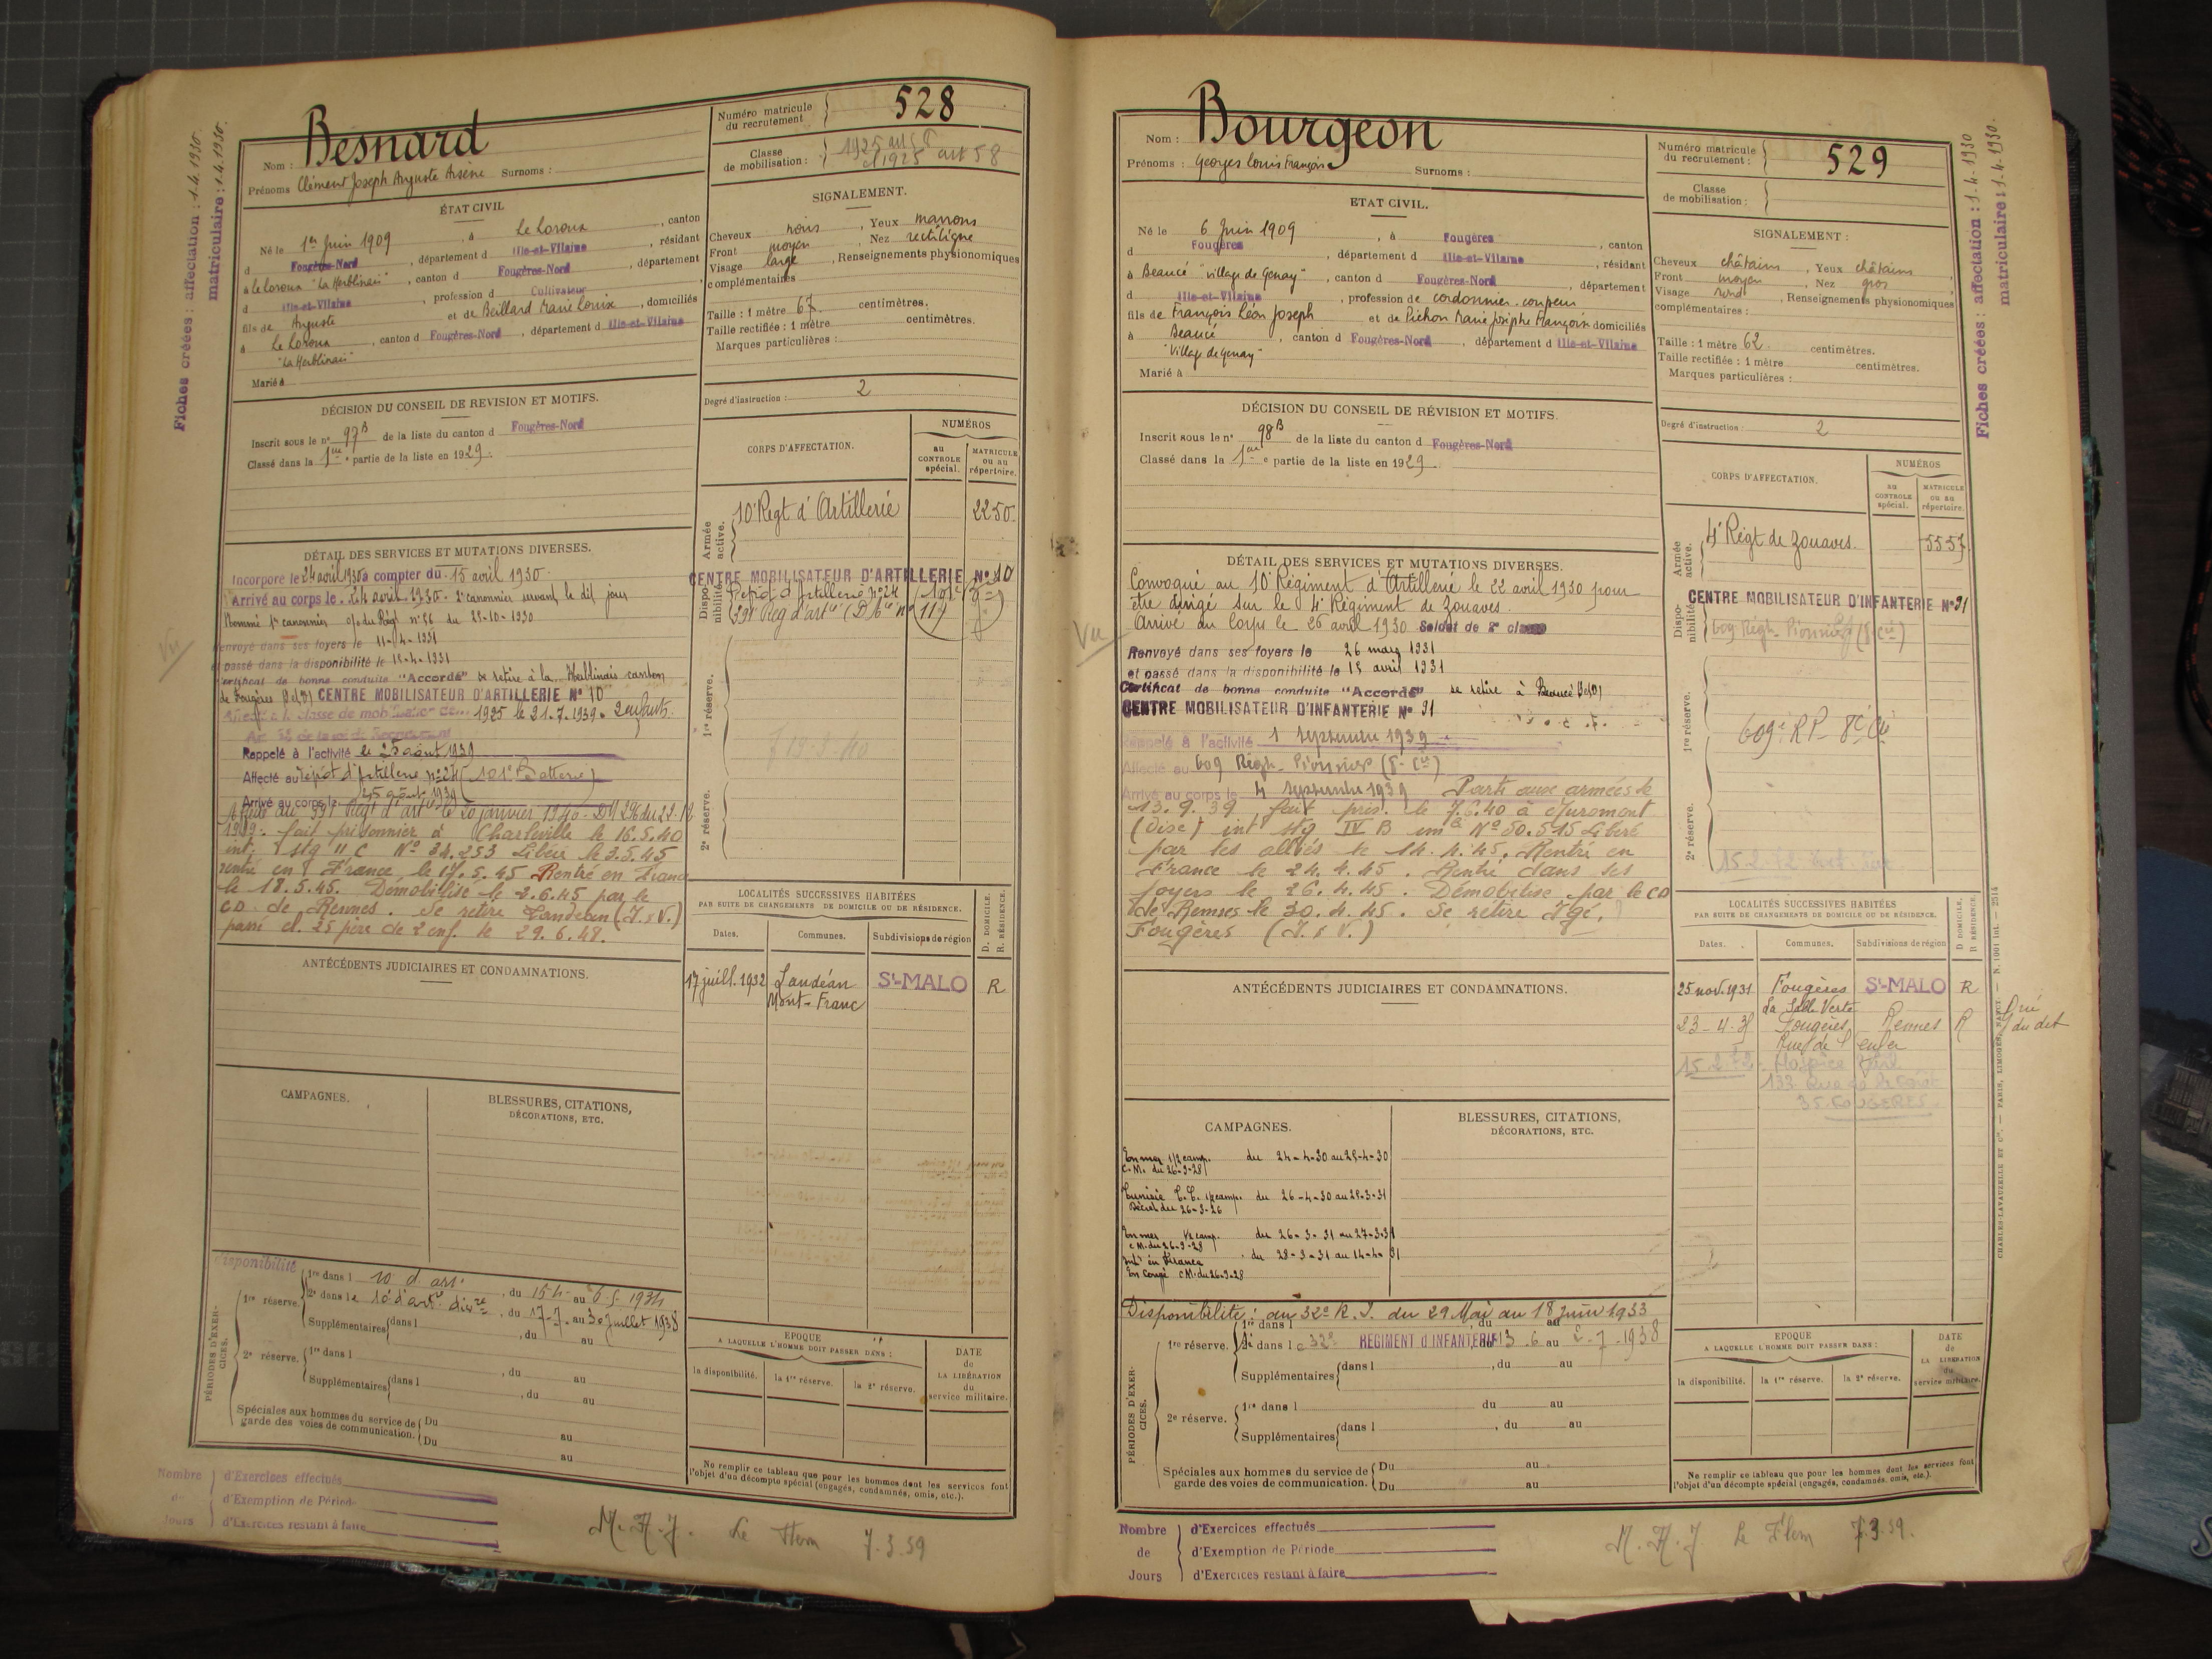 Fiches créées : affectation : 1.4.1930.
matriculaire : 1.4.1930.
Nom : Besnard
Prénoms Clément Joseph Auguste Arsène Surnoms :
Numéro matricule du recrutement 528
Classe de mobilisation : 1925 art 58
ÉTAT CIVIL
Né le 1er Juin 1909, à Le Loroux, canton
d Fougères-Nord, département d Ille-et-Vilaine, résidant
à Le Loroux "La Herblinais", canton d Fougères-Nord, département
d Ille-et-Vilaine, profession d Cultivateur
fils de Auguste et de Beillard Marie Louise, domiciliés
à Le Loroux, canton d Fougères-Nord, département d Ille-et-Vilaine
"La Herblinais"
Marié à
SIGNALEMENT.
Cheveux noirs, Yeux marrons
Front moyen, Nez rectiligne
Visage large, Renseignements physionomiques
complémentaires
Taille : 1 mètre 67 centimètres.
Taille rectifiée : 1 mètre centimètres.
Marques particulières :
Degré d'instruction : 2
DÉCISION DU CONSEIL DE REVISION ET MOTIFS.
Inscrit sous le n° 97B de la liste du canton d Fougères-Nord
Classé dans la 1ère partie de la liste en 1929.
CORPS D'AFFECTATION.
NUMÉROS
au CONTROLE spécial.
MATRICULE ou au répertoire.
Armée active.
10e Regt d'Artillerie 2250.
Disponibilité.
CENTRE MOBILISATEUR D'ARTILLERIE N° 10
Dépôt d'Artillerie n° 24
391e Rég d'artie
1re réserve.
2e réserve.
DÉTAIL DES SERVICES ET MUTATIONS DIVERSES.
Incorporé le 24 avril 1930 à compter du 15 avril 1930.
Arrivé au corps le 24 avril 1930. 2e canonnier servant le dit jour
Nommé 1er canonnier du 23-10-1930
Renvoyé dans ses foyers le 11-4-1931
et passé dans la disponibilité le 15-4-1931
Certificat de bonne conduite "Accordé" se retire à la Herblinais canton
de Fougères (I et V) CENTRE MOBILISATEUR D'ARTILLERIE N° 10
classe de mobilisation de 1925 le 21.7.1939. 2 enfants.
Rappelé à l'activité le 25 août 1939
Affecté au Dépôt d'Artillerie n° 24 (101e Batterie)
Arrivé au corps le 25 août 1939
Affecté au 391 Regt d'artie le 20 janvier 1940.
1939. fait prisonnier à Charleville le 16.5.40
int. stg II C N° 34.253 Libéré le 3.5.45
rentré en France le 17.5.45 Rentré en France
le 18.5.45. Démobilisé le 2.6.45 par le
CD de Rennes. Se retire Landéan (I & V.)
passé cl. 25 père de 2 enf. le 29.6.48.
ANTÉCÉDENTS JUDICIAIRES ET CONDAMNATIONS.
LOCALITÉS SUCCESSIVES HABITÉES
PAR SUITE DE CHANGEMENTS DE DOMICILE OU DE RÉSIDENCE.
Dates. Communes. Subdivisions de région D. DOMICILE. R. RÉSIDENCE.
17 juill. 1932 Landéan St-MALO R
Mont-Franc
CAMPAGNES.
BLESSURES, CITATIONS,
DÉCORATIONS, ETC.
PÉRIODES D'EXERCICES.
disponibilité
1re réserve. 1re dans l 10 d'art., du 15-4- au 6-5-1934
2e dans le 10e d'art. divre, du 17-7- au 30 juillet 1938
Supplémentaires dans l, du au
2e réserve. 1re dans l, du au
Supplémentaires dans l, du au
Spéciales aux hommes du service de garde des voies de communication. Du au
Du au
EPOQUE
A LAQUELLE L'HOMME DOIT PASSER DANS :
la disponibilité. la 1re réserve. la 2e réserve.
DATE de LA LIBÉRATION du service militaire.
Ne remplir ce tableau que pour les hommes dont les services font
l'objet d'un décompte spécial (engagés, condamnés, omis, etc.).
Nombre de Jours
d'Exercices effectués
d'Exemption de Période
d'Exercices restant à faire
7.3.59
Nom : Bourgeon
Prénoms : Georges Louis François Surnoms :
Numéro matricule du recrutement : 529
Classe de mobilisation :
Fiches créées : affectation : 1-4-1930
matriculaire : 1-4-1930.
ETAT CIVIL.
Né le 6 Juin 1909, à Fougères, canton
d Fougères, département d Ille-et-Vilaine, résidant
à Beaucé "village de Genay", canton d Fougères-Nord, département
d Ille-et-Vilaine, profession de cordonnier-coupeur
fils de François Léon Joseph et de Pichon Marie Josèphe Françoise domiciliés
à Beaucé, canton d Fougères-Nord, département d Ille-et-Vilaine
"Village de Genay"
Marié à
SIGNALEMENT :
Cheveux châtains, Yeux châtains
Front moyen, Nez gros
Visage rond, Renseignements physionomiques
complémentaires :
Taille : 1 mètre 62 centimètres.
Taille rectifiée : 1 mètre centimètres.
Marques particulières :
Degré d'instruction : 2
DÉCISION DU CONSEIL DE RÉVISION ET MOTIFS.
Inscrit sous le n° 98B de la liste du canton d Fougères-Nord
Classé dans la 1ère partie de la liste en 1929.
CORPS D'AFFECTATION.
NUMÉROS
au CONTROLE spécial.
MATRICULE ou au répertoire.
Armée active.
4e Régt de Zouaves. 5557
Disponibilité.
CENTRE MOBILISATEUR D'INFANTERIE N° 91
609 Régt. Pionniers (8e Cie)
1re réserve.
609e RP 8e Cie
2e réserve.
15.2.72
DÉTAIL DES SERVICES ET MUTATIONS DIVERSES.
Convoqué au 10e Régiment d'Artillerie le 22 avril 1930 pour
être dirigé sur le 4e Régiment de Zouaves.
Arrivé au Corps le 26 avril 1930 Soldat de 2e classe
Vu
Renvoyé dans ses foyers le 26 mars 1931
et passé dans la disponibilité le 15 avril 1931
Certificat de bonne conduite "Accordé" se retire à Beaucé (I et V)
CENTRE MOBILISATEUR D'INFANTERIE N° 91
Rappelé à l'activité 1 septembre 1939
Affecté au 609 Régt. Pionniers (8e Cie)
Arrivé au corps le 4 septembre 1939 Parti aux armées le
13.9.39 fait pris. le 7.6.40 à Juromont
(Oise) int stg IV B im N° 50.515 Libéré
par les alliés le 14.4.45. Rentré en
France le 24.4.45. Rentré dans ses
foyers le 26.4.45. Démobilisé par le CD
de Rennes le 30.4.45. Se retire
Fougères (I. & V.)
ANTÉCÉDENTS JUDICIAIRES ET CONDAMNATIONS.
LOCALITÉS SUCCESSIVES HABITÉES
PAR SUITE DE CHANGEMENTS DE DOMICILE OU DE RÉSIDENCE.
Dates. Communes. Subdivisions de région D DOMICILE. R RÉSIDENCE.
25 nov. 1931 Fougères St-MALO R
La Salle Verte
23-4-35 Fougères Rennes R
15.2.72 Hospice
133 Rue de la Forêt
35-FOUGERES
CHARLES-LAVAUZELLE ET Cie. — PARIS, LIMOGES, NANCY. — N. 1001 int. — 2514
CAMPAGNES.
BLESSURES, CITATIONS,
DÉCORATIONS, ETC.
En mer 1/2 camp. du 24-4-30 au 25-4-30
C.M. du 26-3-28
Tunisie du 26-4-30 au 25-3-31
Décret du 26-3-26
En mer 1/2 camp. du 26-3-31 au 27-3-31
C.M. du 26-3-28
en France du 28-3-31 au 14-4-31
En congé C.M. du 26-3-28
Disponibilité : au 32e R.I. du 29 Mai au 18 juin 1933
PÉRIODES D'EXERCICES.
1re réserve. 1re dans l, du au
2e dans le 32e REGIMENT d'INFANTERIE, du 13.6 au 2-7-1938
Supplémentaires dans l, du au
2e réserve. 1re dans l du au
Supplémentaires dans l, du au
Spéciales aux hommes du service de garde des voies de communication. Du au
Du au
EPOQUE
A LAQUELLE L'HOMME DOIT PASSER DANS :
la disponibilité. la 1re réserve. la 2e réserve.
DATE de LA LIBERATION du service militaire.
Ne remplir ce tableau que pour les hommes dont les services font
l'objet d'un décompte spécial (engagés, condamnés, omis, etc.).
Nombre de Jours
d'Exercices effectués
d'Exemption de Période
d'Exercices restant à faire
7.3.59.